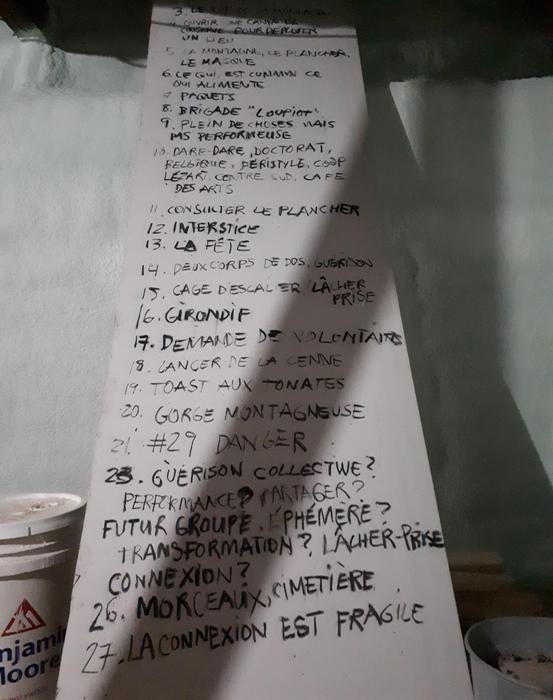 3. LE
OUVRIR UNE CANNE DE
CONSERVE POUR DÉPLOYER
UN LIEU
5. LA MONTAGNE, LE PLANCHER,
LE MASQUE
6. CE QUI EST COMMUN CE
QUI ALIMENTE
7 PAQUETS
8. BRIGADE "LOUPIOT"
9. PLEIN DE CHOSES MAIS
PAS PERFORMEUSE
10. DARE-DARE, DOCTORAT,
BELGIQUE, PÉRISTYLE, COOP
LÉZART, CENTRE SUD, CAFE
DES ARTS
11. CONSULTER LE PLANCHER
12. INTERSTICE
13. LA FÊTE
14. DEUX CORPS DE DOS, GUÉRISON
15. CAGE D'ESCALIER LÂCHER
PRISE
16. GIRONDIF
17. DEMANDE DE VOLONTAIRS
18. LANCER DE LA CENNE
19. TOAST AUX TOMATES
20. GORGE MONTAGNEUSE
21. #29 DANGER
23. GUÉRISON COLLECTIVE?
PERFORMANCE? PARTAGER?
FUTUR GROUPE. ÉPHÉMÈRE?
TRANSFORMATION? LÂCHER-PRISE
CONNEXION?
26. MORCEAUX, CIMETIÈRE
27. LA CONNEXION EST FRAGILE
njamin
Moore